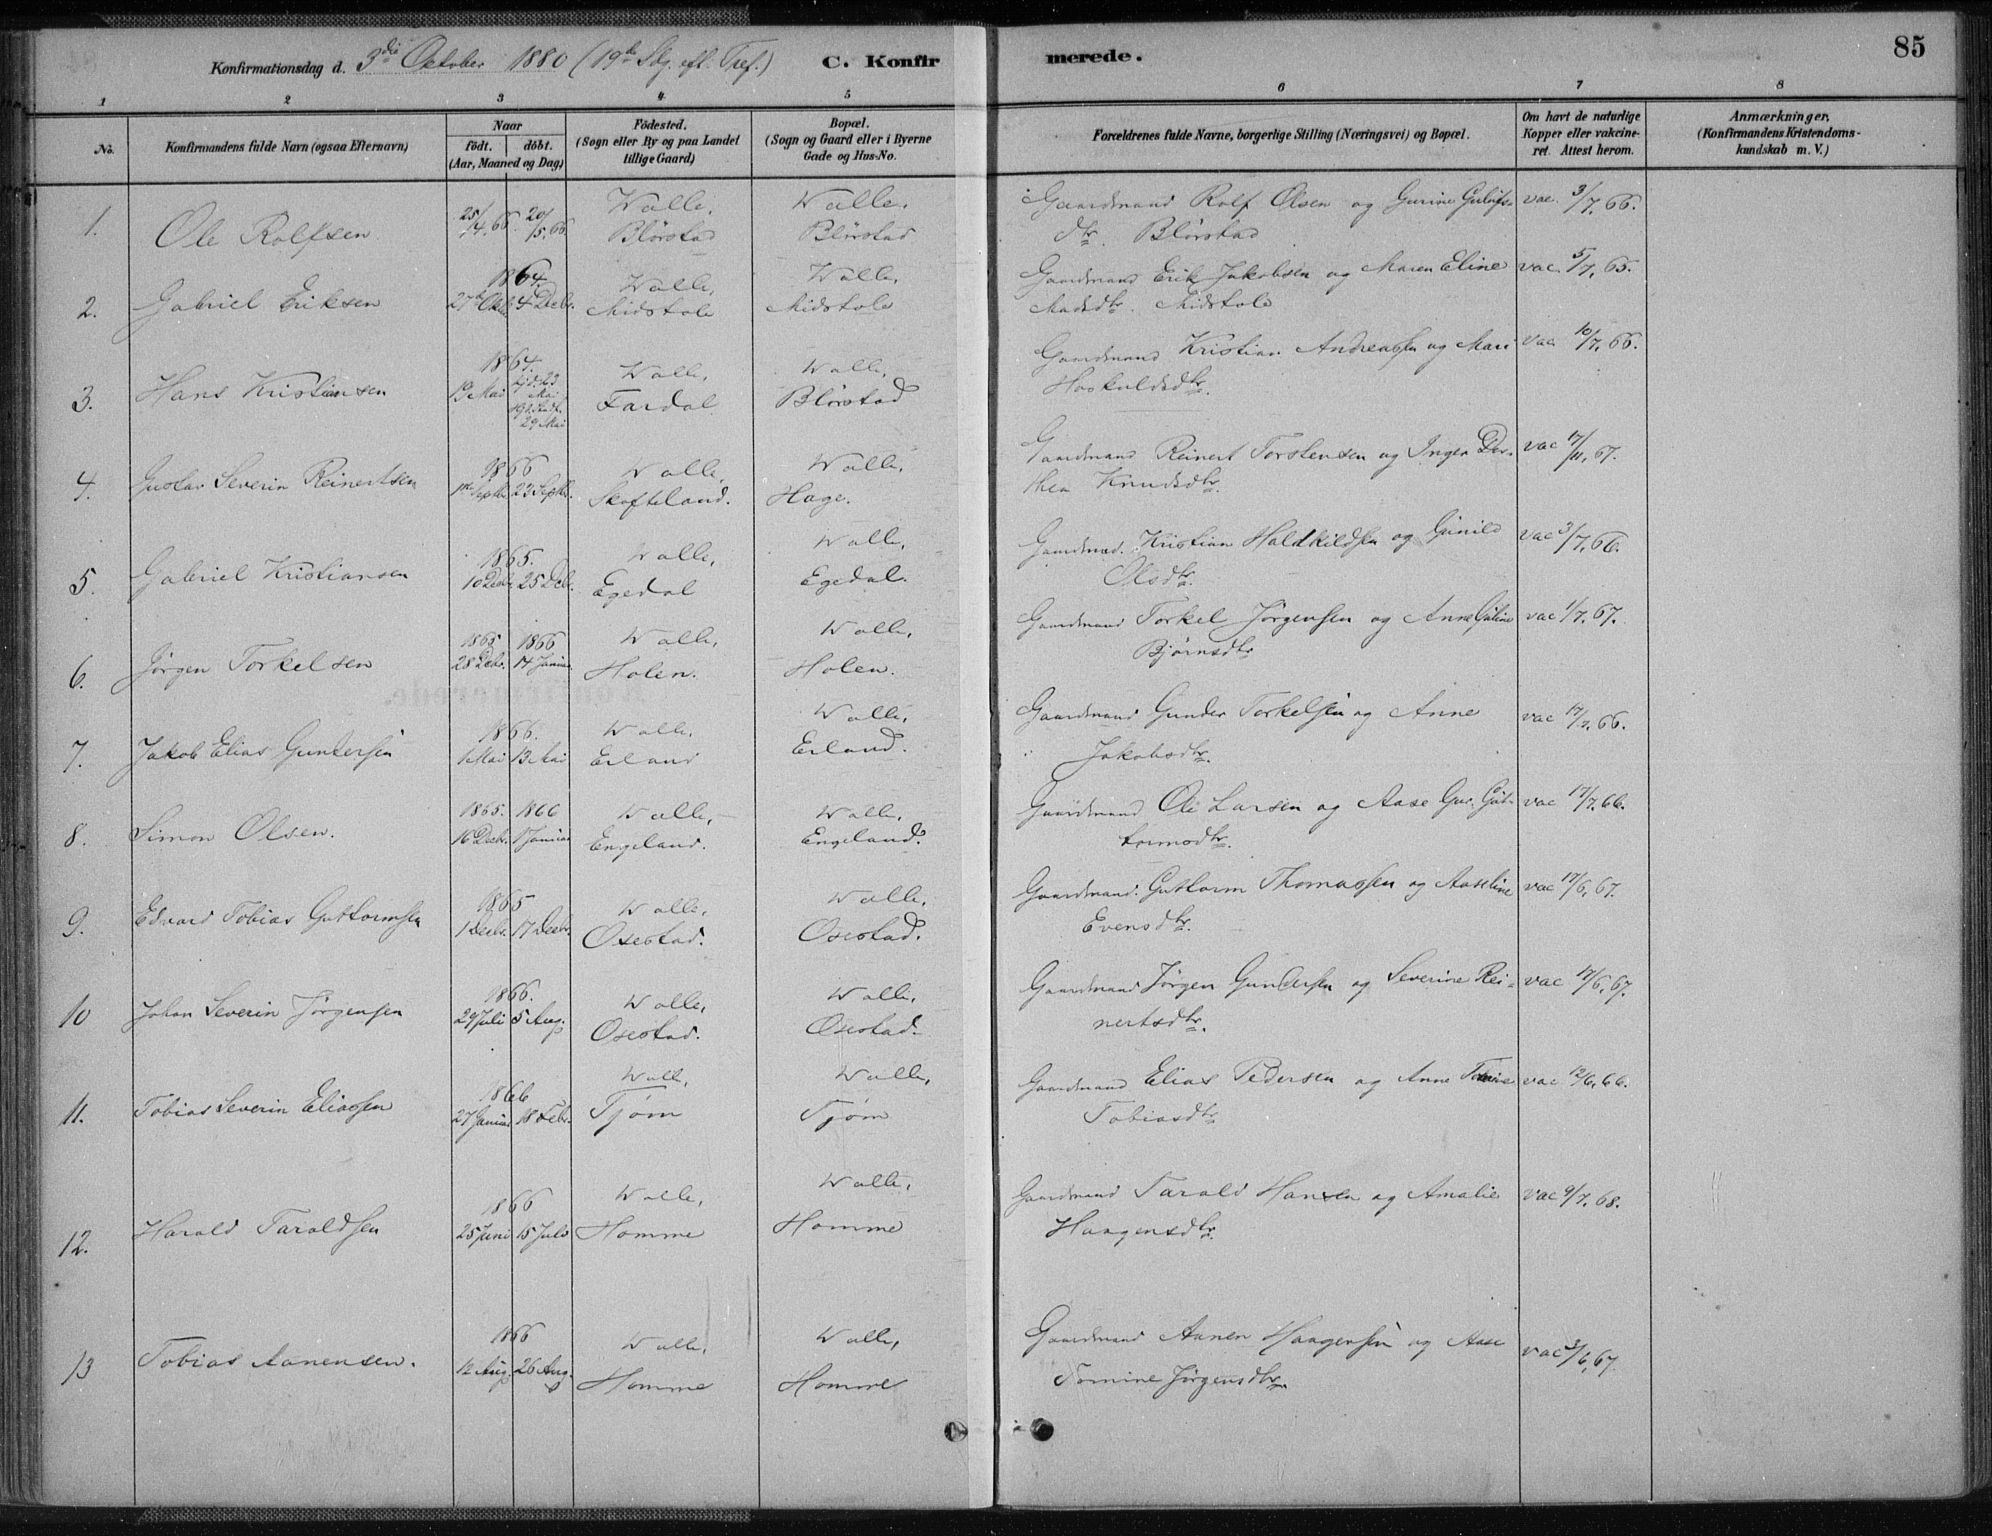 Konfirmationsdag d. 3die Oktober 1880 (19de Sbg. eft. Tref.) C. Konfirmerede. 85
1 2 3 4 5 6 7 8
No. Konfirmandens fulde Navn (ogsaa Efternavn) Naar födt. döbt. (Aar, Maaned og Dag) Födested. (Sogn eller By og paa Landet tillige Gaard) Bopæl. (Sogn og Gaard eller i Byerne Gade og Hus-No. Forældrenes fulde Navne, borgerlige Stilling (Næringsvei) og Bopæl. Om havt de naturlige Kopper eller vakcineret. Attest herom. Anmærkninger. (Konfirmandens Kristendomskundskab m. V.)
1. Ole Rolfsen 25/4.66. 20/5.66. Walle, Blørstad Walle, Blørstad Gaardmand Rolf Olsen og Gurine
dtr. Blørstad vac. 3/7.66.
2. Gabriel Eriksen 1864. 27de Oktbr. 4 Decbr. Walle, Midstole Walle, Midstole Gaardmand Erik Jakobsen og Maren Eline
Madsdtr. Midstole vac. 5/7.65.
3. Hans Kristiansen 1864. 19 Mai hjd. 23 Mai 29 Mai Walle, Fardal Walle, Blørstad Gaardmand Kristian Andreassen og Mari
Haskuldsdtr. vac 10/7.66.
4. Gustav Severin Reinertsen 1866 1ste Septbr. 23 Septbr. Walle, Skofteland. Walle, Hage. Gaardmand Reinert Torstensen og Inger Dorthea
Knudsdtr. vac 17/11.67.
5. Gabriel Kristiansen 1865. 10 Decbr. 25 Decbr. Walle, Egedal Walle, Egedal. Gaardmand. Kristian Haldkildsen og Gunild
Olsdtr. vac 3/7.66.
6. Jørgen Torkelsen 1865 28 Decbr. 1866 14 Januar Walle, Holen. Walle, Holen. Gaardmand Torkel Jørgensen og Anne
Bjørnsdtr vac 1/7.67.
7. Jakob Elias Gundersen 1866. 1 Mai 13 Mai Walle, Erland Walle, Erland. Gaardmand Gunder Torkelsen og Anne
Jakobsdtr. vac 17/7.66.
8. Simon Olsen. 1865. 16 Decbr. 1866 1 Januar Walle, Engeland. Walle, Engeland. Gaardmand Ole Larsen og Aase Gur. Guttormsdtr. vac 17/7.66.
9. Edvard Tobias Guttormsen 1865 1 Decbr. 17 Decbr. Walle, Osestad. Walle, Osestad. Gaardmand. Guttorm Thomassen og Aaseline
Evensdtr. vac 17/6.67.
10 Johan Severin Jørgensen 1866. 29 Juli 5 Aug. Walle, Osestad. Walle, Osestad. Gaardmand Jørgen Gundersen og Severine Reinertsdtr. vac 17/6.67.
11. Tobias Severin Eliassen 1866 27 Januar 18 Febr. Walle, Tjøm Walle, Tjøm Gaardmand Elias Pedersen og Anne
Tobiasdtr vac 12/6.66.
12. Harald Taraldsen 1866 25 Juni 15 Juli Walle, Homme Walle, Homme Gaardmand Tarald Hansen og Amalie
Haagensdtr. vac 9/7.68.
13 Tobias Aanensen. 1866 12 Aug. 26 Aug. Walle, Homme Walle, Homme Gaardmand Aanen Haagensen og Aase
Tomine Jørgensdtr. vac 3/6.67.